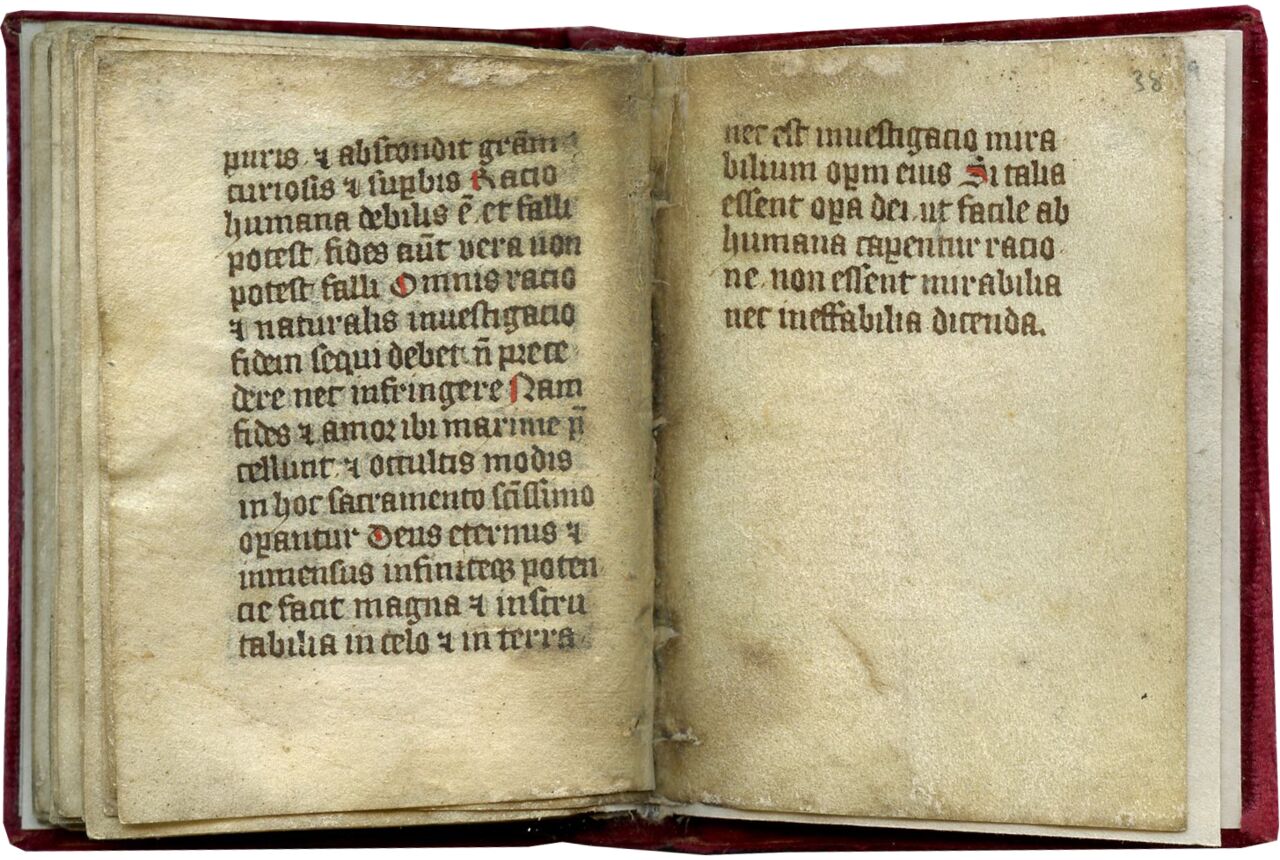 puris ⁊ abscondit gr̄am
curiosis ⁊ suꝑbis Racio
humana debilis ē et falli
potest fides aūt vera non
potest falli Omnis racio
⁊ naturalis inuestigacio
fidem sequi debet n̄ prece
dere nec infringere Nam
fides ⁊ amor ibi maxime p̄
cellunt ⁊ occultis modis
in hoc sacramento sc̄issimo
oꝑantur Deus eternus ⁊
inmensus infiniteqꝫ poten
cie facit magna ⁊ inscru
tabilia in celo ⁊ in terra
38
nec est inuestigacio mira
bilium oꝑm eius Si talia
essent oꝑa dei ut facile ab
humana caꝑentur racio
ne non essent mirabilia
nec ineffabilia dicenda.